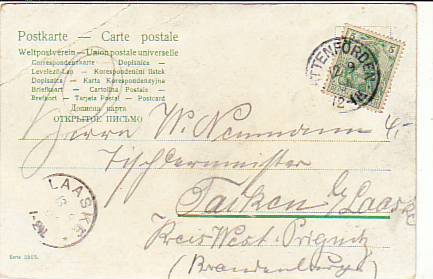 Postkarte — Carte postale
Weltpostverein — Union postale universelle
Correspondenzkarte — Dopisnice —
Levelező-Lap — Korespondenční lístek
Dopisnica — Karta Korespondencyjna
Briefkaart — Cartolina Postale
Brefkort — Tarjeta Postal — Postcard
ОТКРЫТОЕ ПИСЬМО
5 5
TTENFÖRDEN
Herrn W. Neumann
Tischlermeister
LAASKE
b/ Laaske
Kreis West-Prignitz
(Brandenburg)